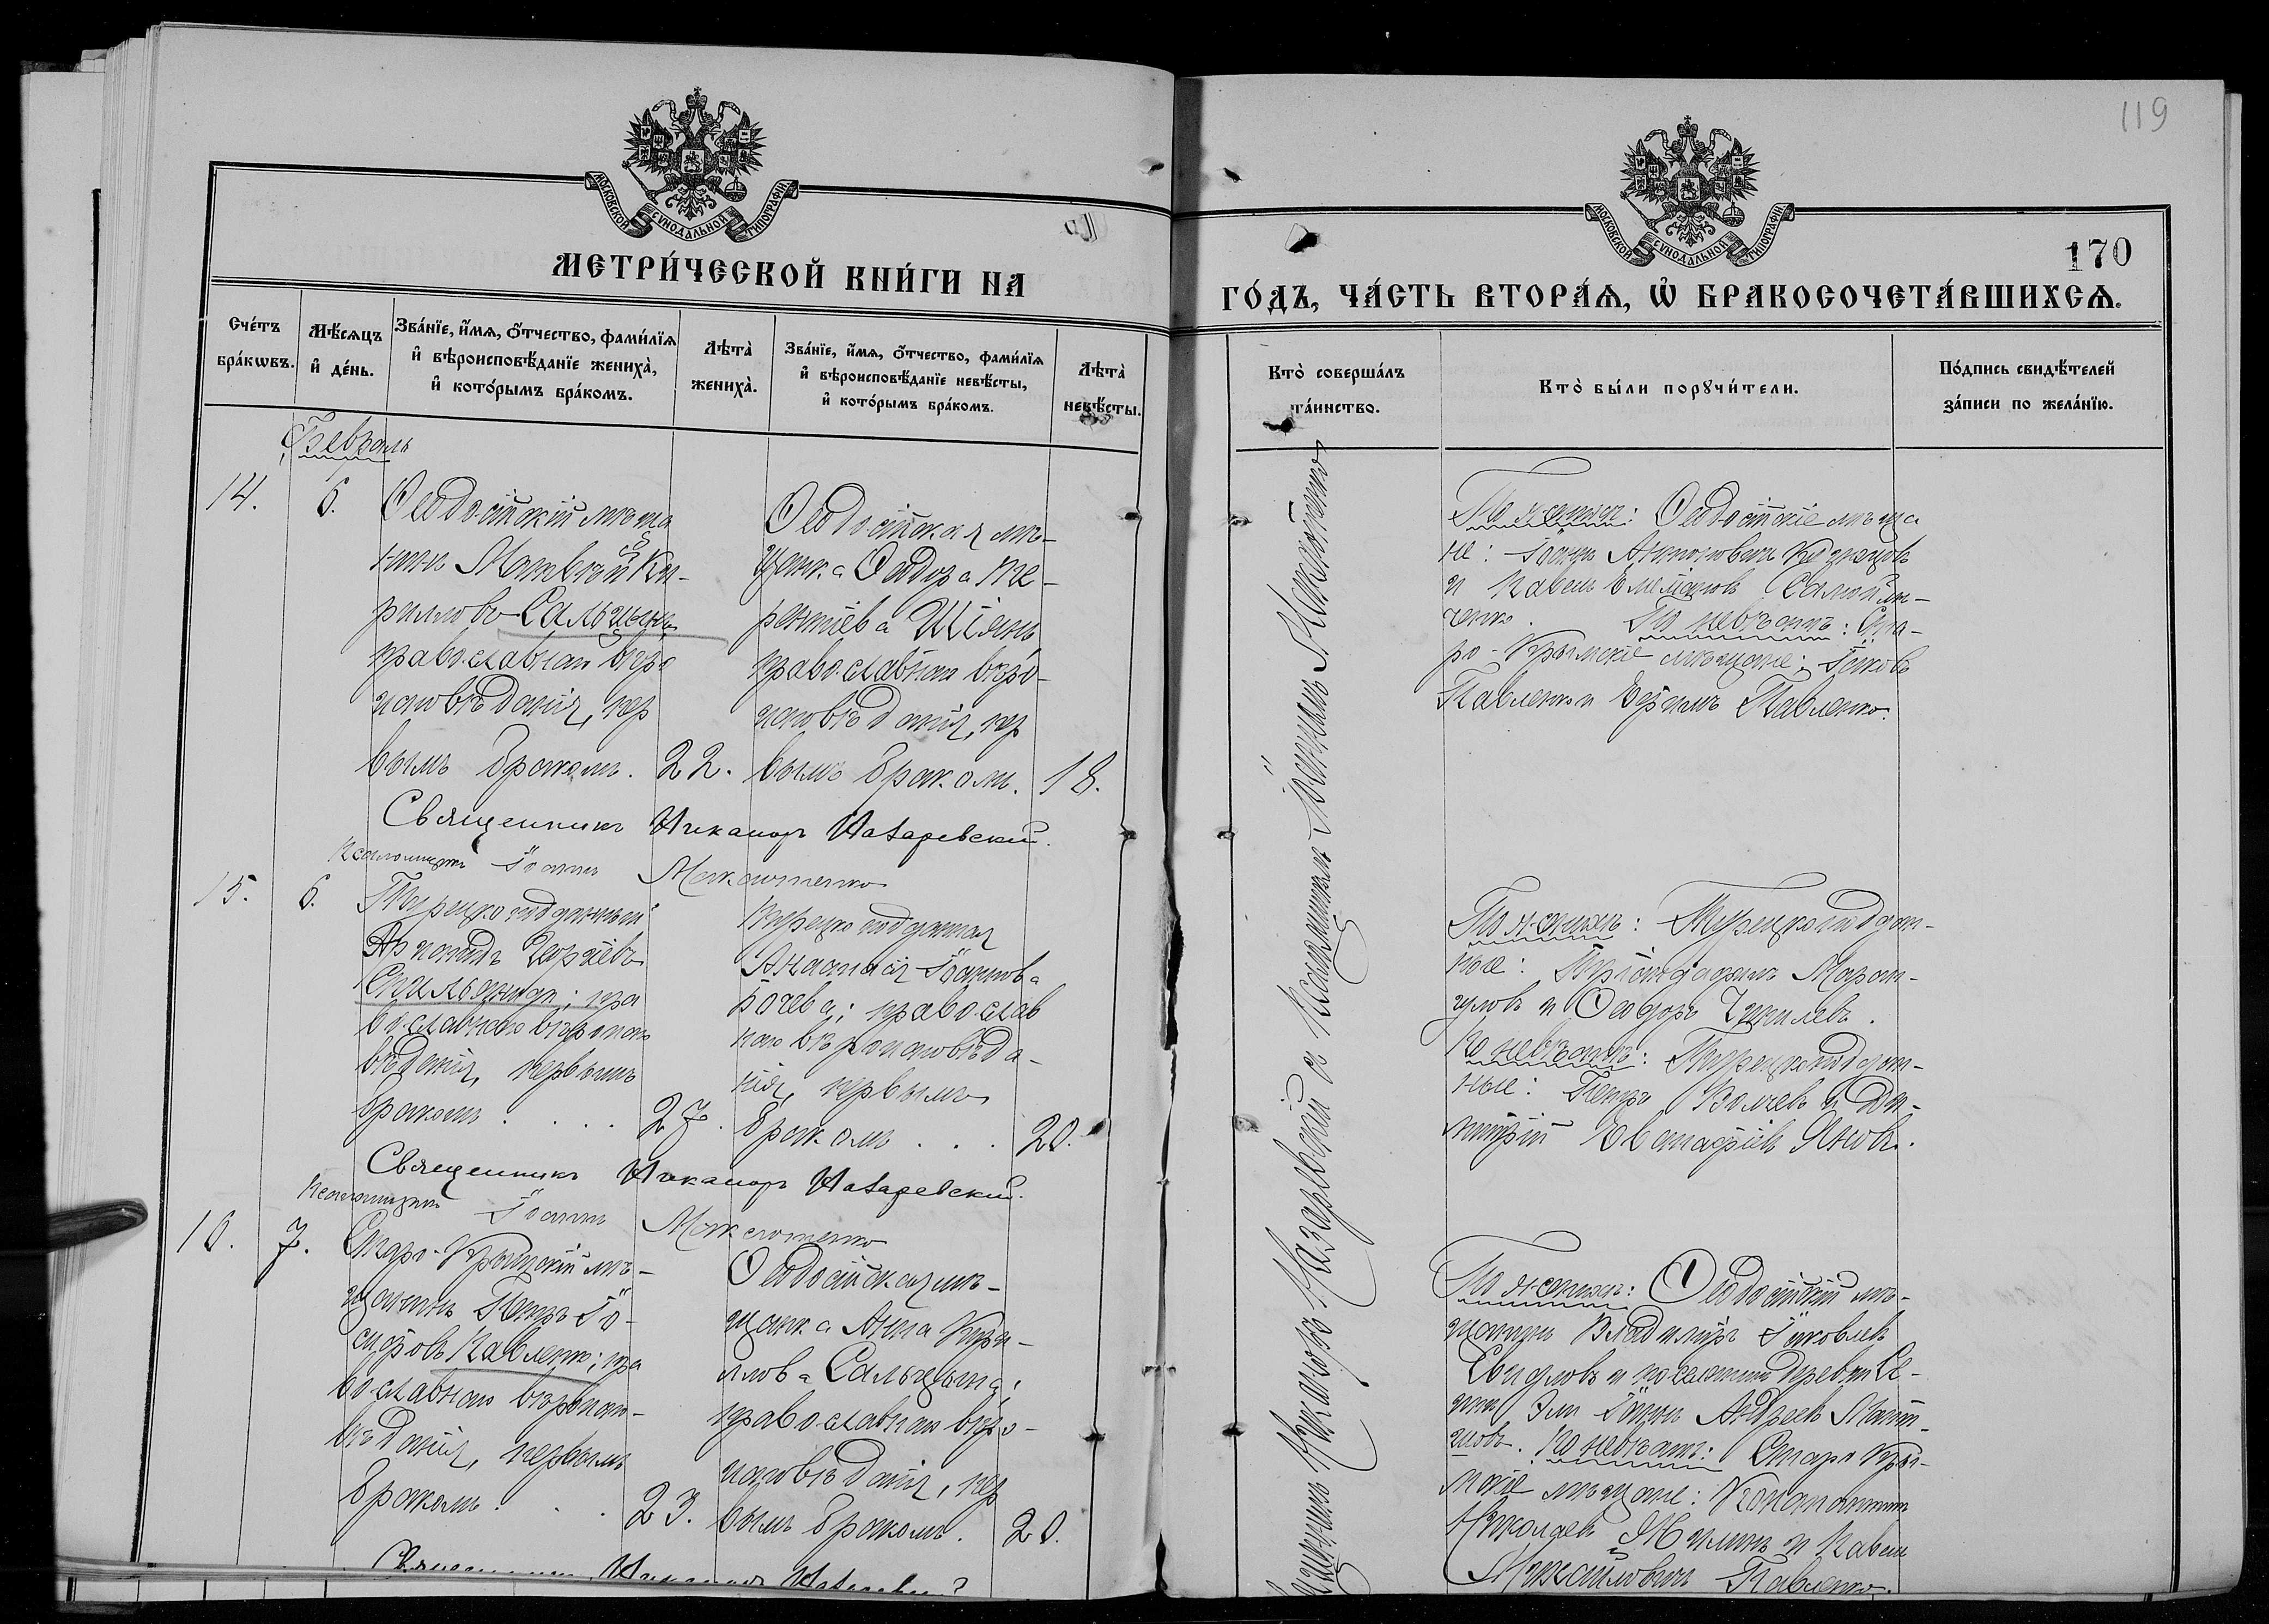 МОСКОВСКОЙ СУНОДАЛЬНОЙ ТИПОГРАФІИ
МЕТРИ́ЧЕСКОЙ КНИ́ГИ НА
Сче́тъ бра́кѡвъ.
Мѣ́сяцъ и҆ де́нь.
Зва́нїе, и҆́мѧ, ѻ҆́тчество, фами́лїѧ
и҆ вѣроисповѣ́данїе жениха̀,
и҆ кото́рымъ бра́комъ.
Лѣта̀ жениха̀.
Зва́нїе, и҆́мѧ, ѻ҆́тчество, фами́лїѧ
и҆ вѣроисповѣ́данїе невѣ́сты,
и҆ кото́рымъ бра́комъ.
Лѣта̀ невѣ́сты.
Февраль
14.
6.
Ѳеодосійскій мѣща
нинъ Матвѣй Ки-
рилловъ Сальцынъ
православнаго вѣро
исповѣданія, пер
вымъ бракомъ.
22.
Ѳеодосійская мѣ-
щанка Ѳеодора Те-
рентіева Шіянъ
православнаго вѣро-
исповѣданія, пер
вымъ бракомъ.
18.
Священникъ Никаноръ Назаревскій.
Псаломщикъ Іоаннъ
15.
6.
Турецкоподданный
Георгіевъ
пра
вославнаго вѣроиспо
вѣданія, первымъ
бракомъ . . . .
27.
Турецкоподданная
Анастасія Іоаннова
Бочева; православ
наго вѣроисповѣда-
нія, первымъ
бракомъ . . .
20.
Священникъ Никаноръ Назаревскій.
Псаломщикъ Іоаннъ
16.
7.
Старо-Крымскій мѣ-
щанинъ Петръ Іо-
сифовъ Павленко; пра
вославнаго вѣроиспо-
вѣданія, первымъ
бракомъ . . .
23.
Ѳеодосійская мѣ-
щанка Анна Кири-
ллова Сальцына;
православнаго вѣро-
исповѣданія, пер
вымъ бракомъ.
20.
Священникъ Никаноръ Назаревскій
119
МОСКОВСКОЙ СУНОДАЛЬНОЙ ТИПОГРАФІИ
170
ГО́ДЪ, ЧА́СТЬ ВТОРА́Ѧ, Ѽ БРАКОСОЧЕТА́ВШИХСѦ.
Кто̀ соверша́лъ
та́инство.
Кто̀ бы́ли порꙋчи́тели.
По́дпись свидѣ́телей
за́писи по жела́нїю.
Священникъ Никаноръ Назаревскій и Псаломщикъ Іоаннъ
По женихѣ: Ѳеодосійскіе мѣща
не: Іоаннъ Кузнецовъ
и Павелъ Самойли-
ченко. По невѣстѣ: Ста-
ро-Крымскіе мѣщане: Іаковъ
Павленко и Ефимъ Павленко.
По женихѣ: Турецкоподдан-
ные:
и Ѳеодоръ
По невѣстѣ: Турецкоподдан-
ные: Петръ и Ди-
митрій Яновъ.
По женихѣ: Ѳеодосійскій мѣ-
щанинъ Владиміръ Іаковлевъ
и поселянинъ деревни
Эли Іоаннъ Андреевъ
По невѣстѣ: Старо Кры-
мскіе мѣщане: Константинъ
Николаевъ и Павелъ
Михайловичъ Павленко.